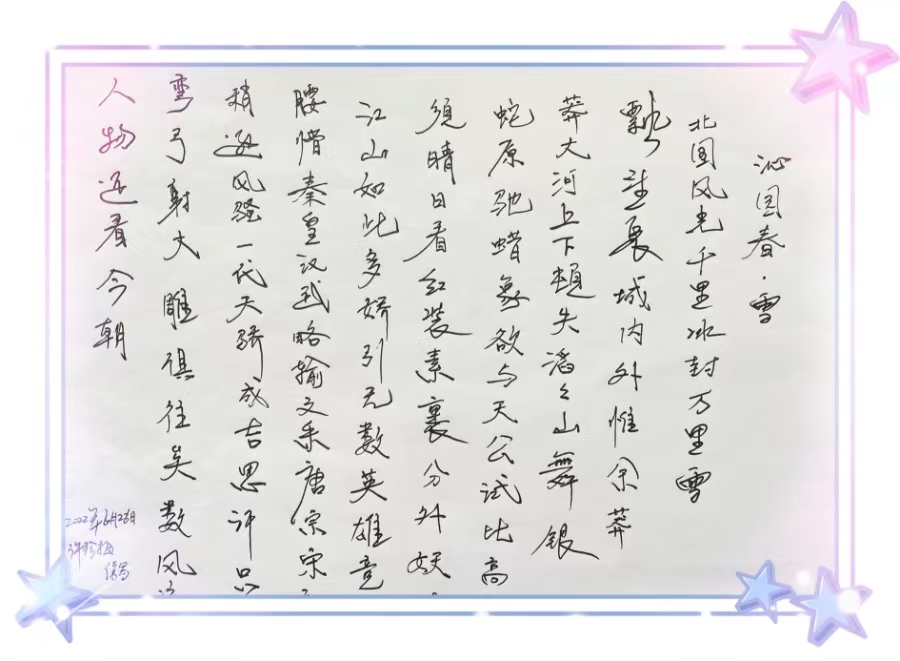 沁园春·雪
北国风光千里冰封万里雪
飘望長城内外惟余莽
莽大河上下頓失滔々山舞银
蛇原驰蜡象欲与天公试比高
須晴日看红装素裹分外妖
江山如此多娇引无数英雄竞
腰惜秦皇汉武略输文采唐宗宋
稍逊风骚一代天骄成吉思汗只
弯弓射大雕俱往矣数风
人物还看今朝
2022年6月26日